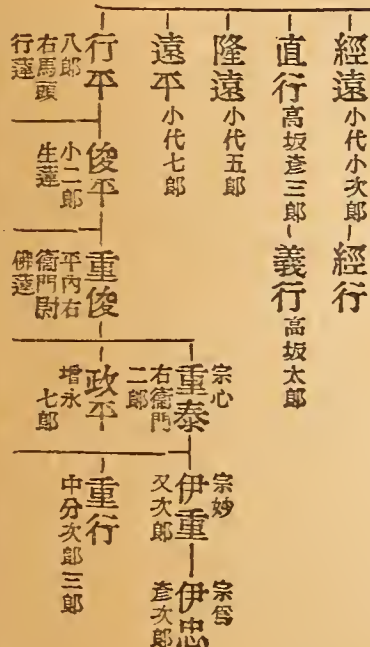 經遠 小代小次郎 經行
直行 高坂彥三郎 義行 高坂太郎
隆遠 小代五郎
遠平 小代七郎
行平 八郎 右馬頭 行蓮
俊平 小二郎 生蓮
重俊 平內右衞門尉 佛蓮
重泰 宗心 右衞門二郎
伊重 宗妙 又次郎
伊忠 彥次郎
政平 增永七郎
重行 中分次郎三郎